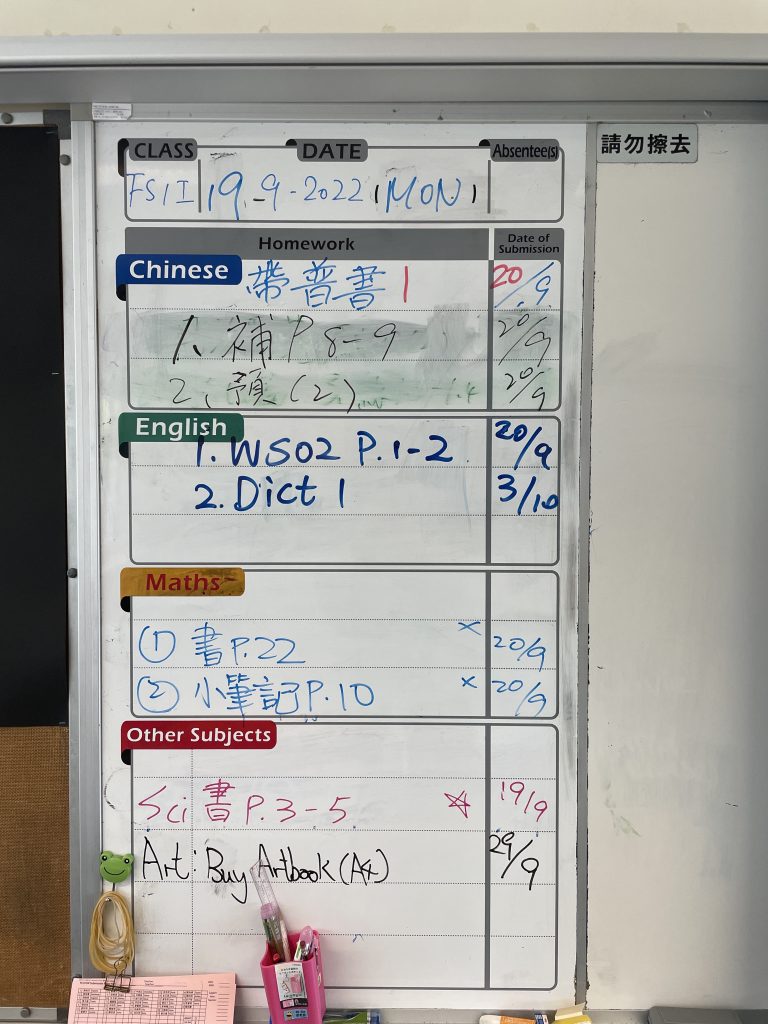 請勿擦去
CLASS DATE Absentee(s)
FS1I 19-9-2022 (MON)
Homework Date of Submission
Chinese 帶普書 1 20/9
1、補P 8-9 20/9
2、預(2) 20/9
English
1. WS02 P.1-2 20/9
2. Dict 1 3/10
Maths
① 書P.22 × 20/9
② 小筆記P.10 × 20/9
Other Subjects
Sci 書P.3-5 ☆ 19/9
Art: Buy Artbook (A4) 29/9